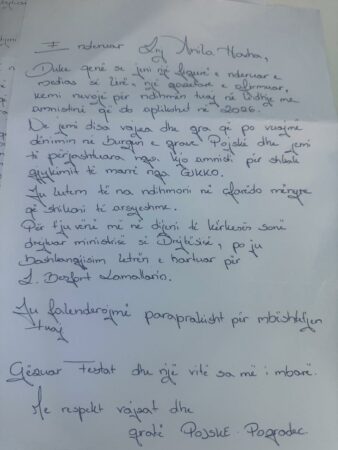 I nderuar Znj Anila Hoxha,
Duke qenë se jeni një figurë e nderuar e
medias së lirë, një gazetare e afirmuar,
kemi nevojë për ndihmën tuaj në lidhje me
amnistinë që do aplikohet në 2026.
Ne jemi disa vajza dhe gra që po vuajmë
dënimin në burgun e grave Pojskë dhe jemi
të përjashtuara nga kjo amnisti për shkak
gjykimit të marrë nga GJKKO.
Ju lutem të na ndihmoni në çfarëdo mënyre
që shikoni të arsyeshme.
Për t'ju vënë më në dijeni të kërkesës sonë
drejtuar ministrisë së Drejtësisë, po ju
bashkangjisim letrën e hartuar për
Z. Besfort Lamallarin.
Ju falenderojmë paraprakisht për mbështetjen
tuaj
Gëzuar Festat dhe një vitë sa më i mbarë.
Me respekt vajzat dhe
gratë POJSKË - Pogradec